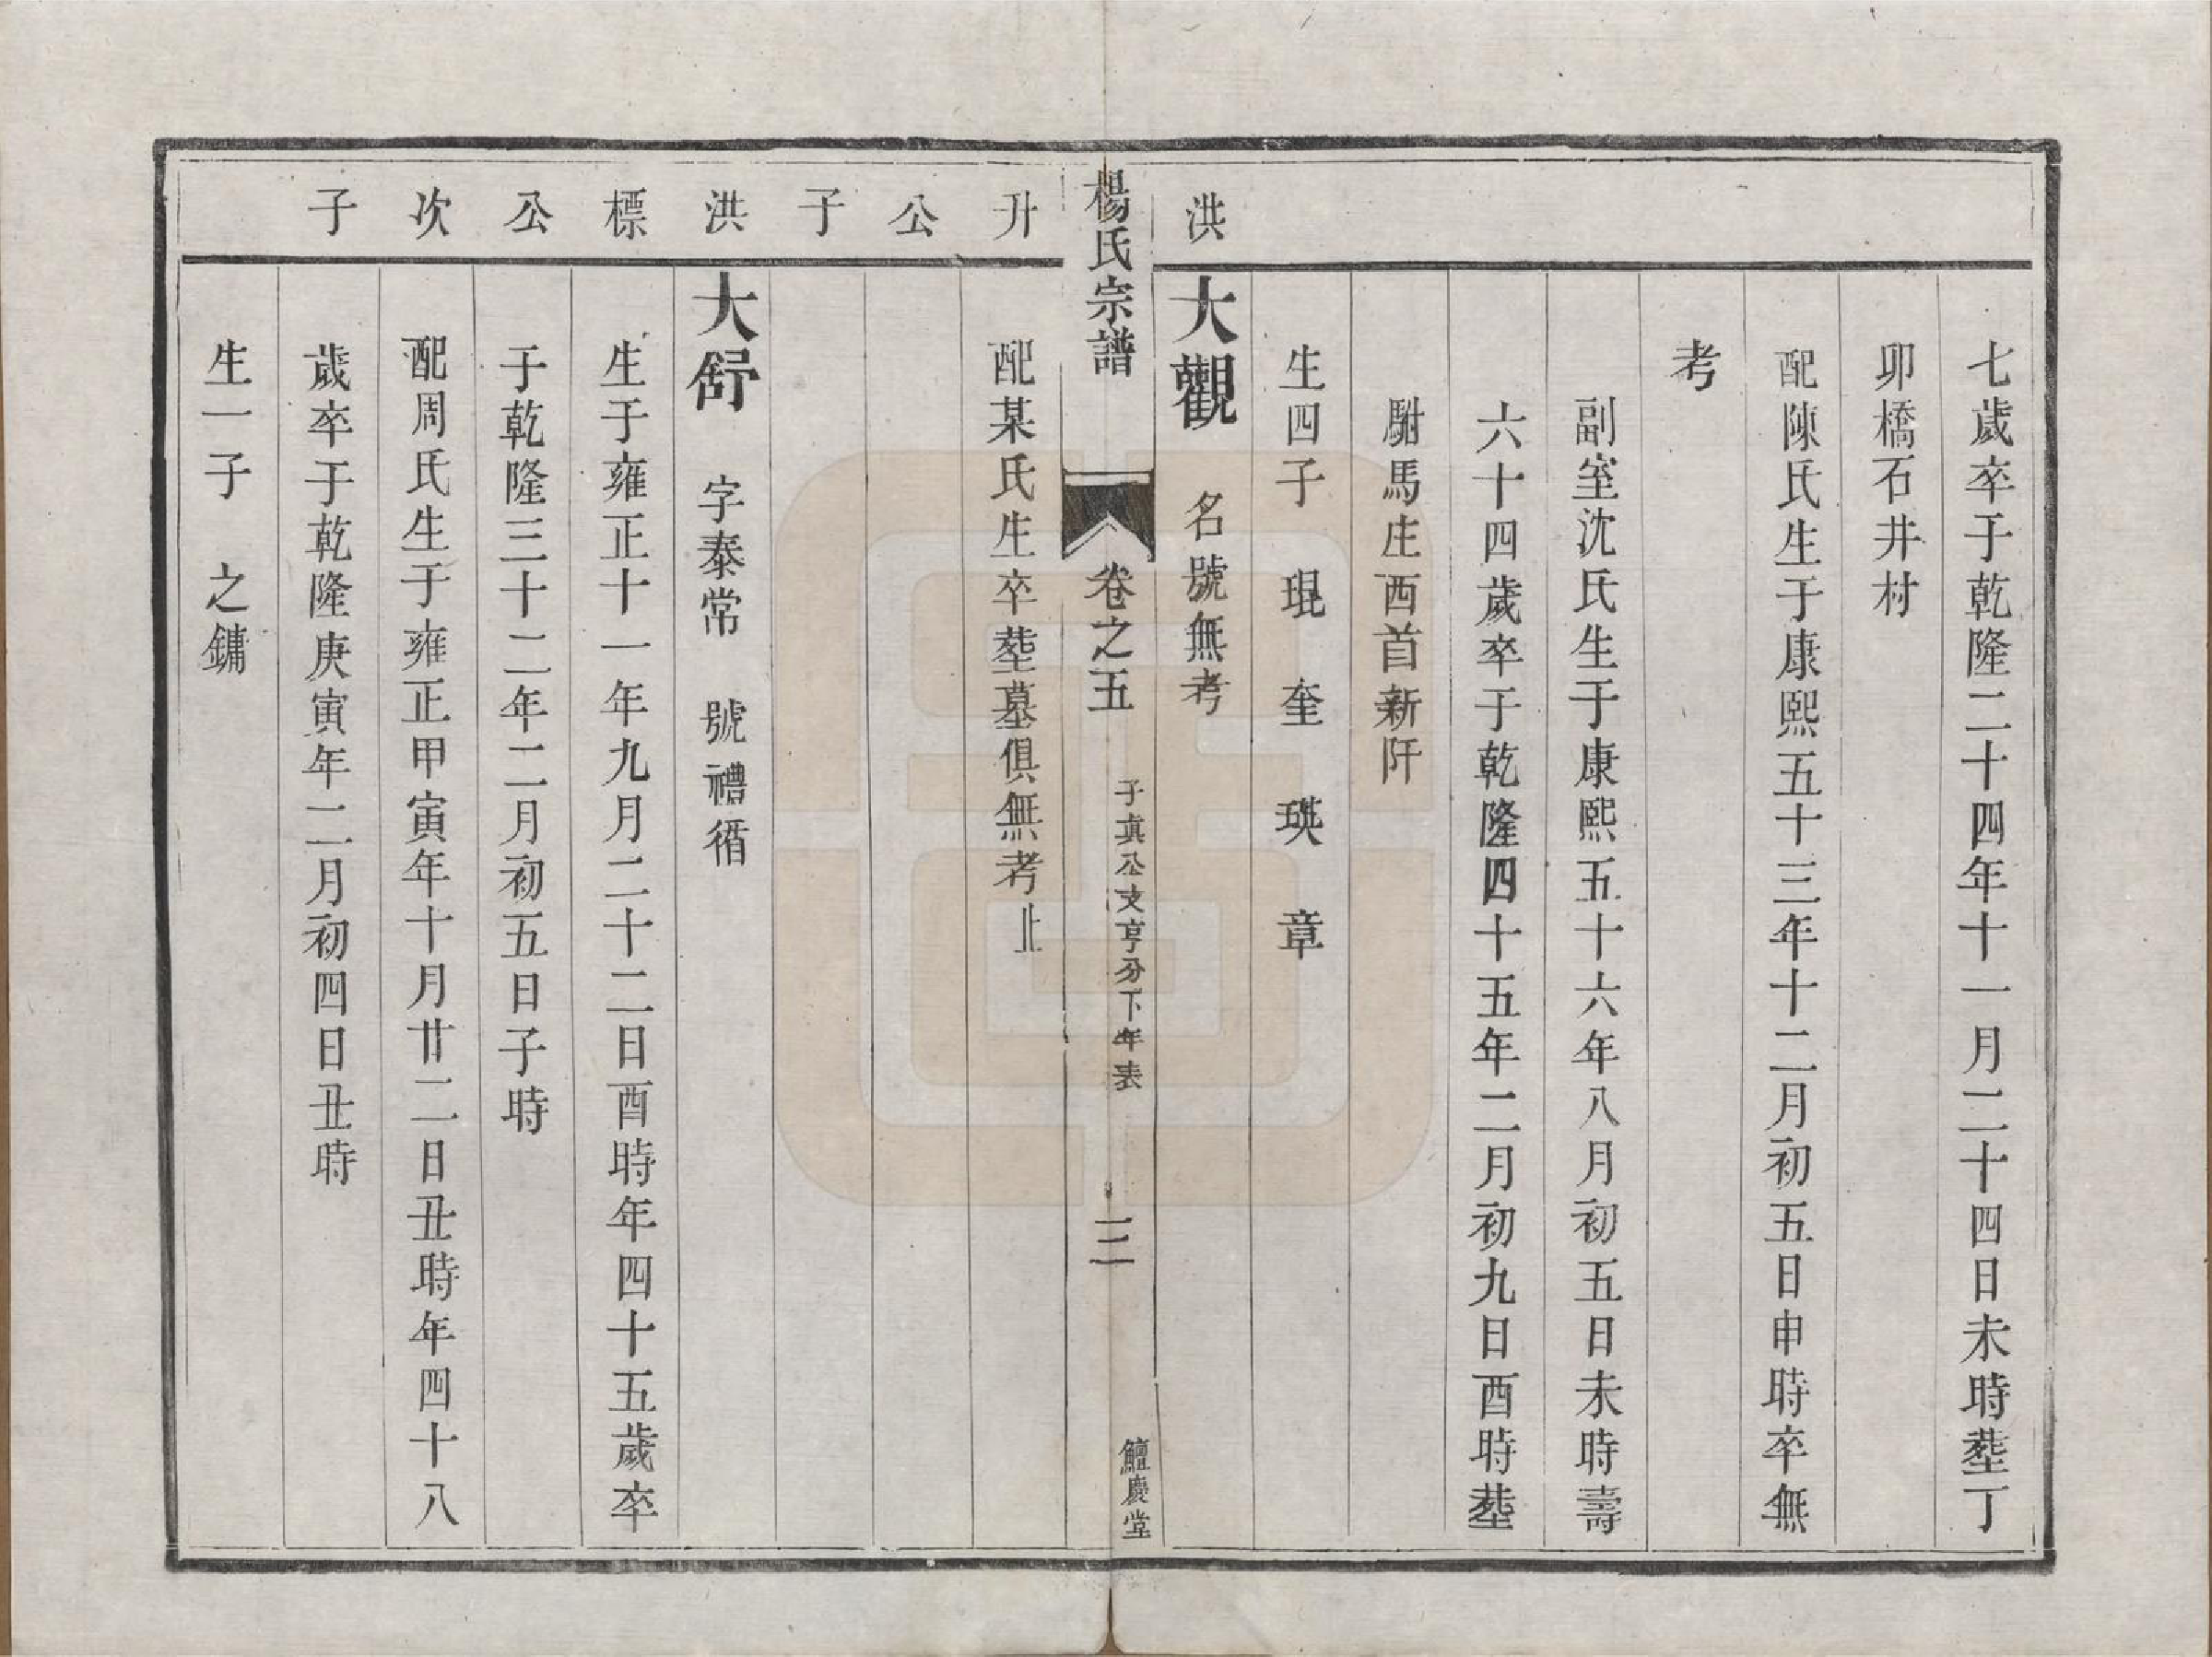 七歲卒于乾隆二十四年十一月二十四日未時塟丁
卯橋石井村
配陳氏生于康熙五十三年十二月初五日申時卒無
考
副室沈氏生于康熙五十六年八月初五日未時壽
六十四歲卒于乾隆四十五年二月初九日酉時塟
駙馬庄西首新阡
生四子 琨 奎 瑛 章
洪
大觀 名號無考
楊氏宗譜 卷之五 子真公支亨分下年表 三 鱣慶堂
升公子
配某氏生卒塟墓俱無考止
洪標公次子
大舒 字泰常 號禮循
生于雍正十一年九月二十二日酉時年四十五歲卒
于乾隆三十二年二月初五日子時
配周氏生于雍正甲寅年十月廿二日丑時年四十八
歲卒于乾隆庚寅年二月初四日丑時
生一子 之鏞